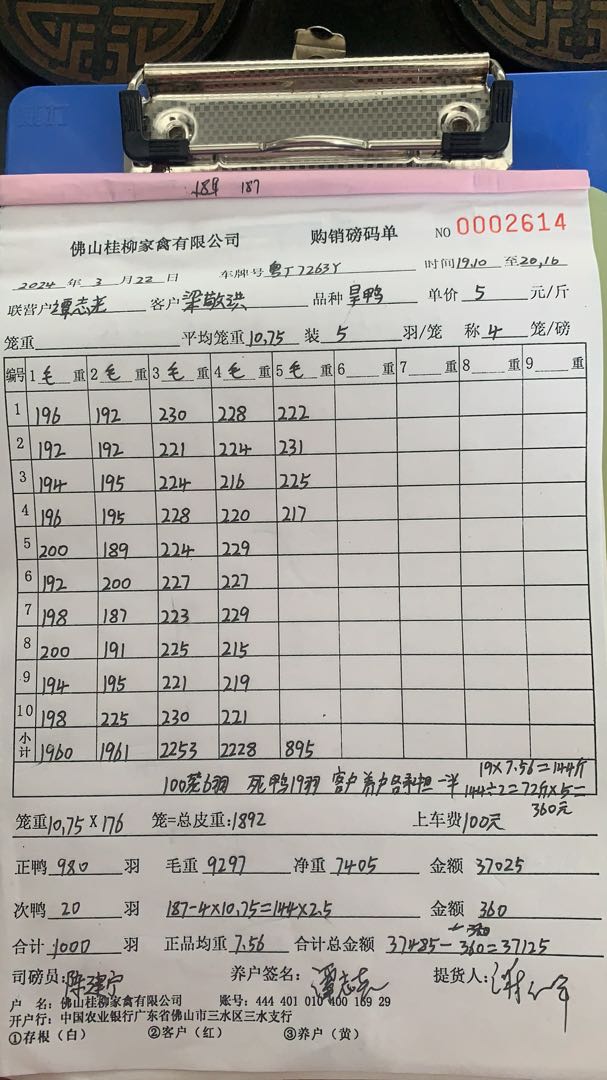 187
佛山桂柳家禽有限公司 购销磅码单 NO 0002614
2024 年 3 月 22 日 车牌号 粤J7263Y 时间19,10 至20,16
联营户 谭志光 客户 梁敬洪 品种 旱鸭 单价 5 元/斤
笼重 平均笼重10,75 装 5 羽/笼 称 4 笼/磅
编号 1 毛 重 2 毛 重 3 毛 重 4 毛 重 5 毛 重 6 重 7 重 8 重 9 重
1 196 192 230 228 222
2 192 192 221 224 231
3 194 195 224 216 225
4 196 195 228 220 217
5 200 189 224 229
6 192 200 227 227
7 198 187 223 229
8 200 191 225 215
9 194 195 221 219
10 198 225 230 221
小计 1960 1961 2253 2228 895
19×7.56=144斤
100笼6羽 死鸭19羽 客户养户各承担一半 144÷2=72斤×5=
360元
笼重10,75×176 笼=总皮重:1892 上车费100元
正鸭 980 羽 毛重 9297 净重 7405 金额 37025
次鸭 20 羽 187-4×10,75=144×2.5 金额 360
合计 1000 羽 正品均重 7.56 合计总金额 37485-360=37125
司磅员: 养户签名: 谭志光 提货人:
户 名: 佛山桂柳家禽有限公司 账号: 444 401 010 400 169 29
开户行: 中国农业银行广东省佛山市三水区三水支行
①存根（白） ②客户（红） ③养户（黄）